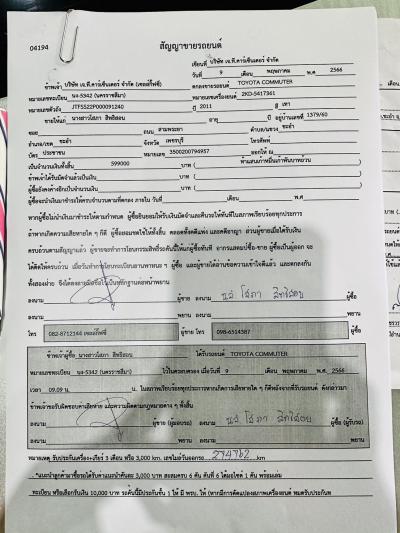 04194
สัญญาขายรถยนต์
เขียนที่ บริษัท เจ.พี.คาร์เซ็นเตอร์ จำกัด
วันที่ 9 เดือน พฤษภาคม พ.ศ 2566
ข้าพเจ้า บริษัท เจ.พี.คาร์เซ็นเตอร์ จำกัด (เซลล์กีฟซี่) ตกลงขายรถยนต์ TOYOTA COMMUTER
หมายเลขทะเบียน นง-5342 (นครราชสีมา) หมายเลขเครื่องยนต์ 2KD-5417361
หมายเลขตัวถัง JTFSS22P000091240 ปี 2011 สี เทา
ขายให้แก่ นางสาวโสภา สิทธิสอน อายุ ปี อยู่บ้านเลขที่ 1379/60
ซอย ถนน สามพระยา ตำบล/แขวง ชะอำ
อำเภอ/เขต ชะอำ จังหวัด เพชรบุรี โทรศัพท์
บัตร ประชาชน หมายเลข 3500200794957 ออกให้ ณ
เป็นจำนวนเงินทั้งสิ้น 599000 บาท ( ห้าแสนเก้าหมื่นเก้าพันบาทถ้วน )
ข้าพเจ้าได้รับมัดจำแล้วเป็นเงิน บาท ( )
ผู้ซื้อยังคงค้างอีกเป็นจำนวนเงิน บาท ( )
ผู้ซื้อจะนำเงินมาชำระให้ครบจำนวนตามที่ตกลง ภายใน วันที่ เดือน พ.ศ
หากผู้ซื้อไม่นำเงินมาชำระให้ตามกำหนด ผู้ซื้อยินยอมให้ริบเงินมัดจำและคืนรถให้ทันทีในสภาพเรียบร้อยทุกประการ
ถ้าหากเกิดความเสียหายใด ๆ ก็ดี ผู้ซื้อยอมชดใช้ให้ทั้งสิ้น ตลอดทั้งคดีแพ่ง และคดีอาญา ส่วนผู้ขายเมื่อได้รับเงิน
ครบถ้วนตามสัญญาแล้ว ผู้ขายจะทำการโอนกรรมสิทธิ์รถคันนี้ให้แก่ผู้ซื้อทันที
ผู้ซื้อ และผู้ขายได้อ่านข้อความเข้าใจดีแล้ว และตกลงกัน
ทั้งสองฝ่าย จึงได้ลงลายมือชื่อไว้เป็นหลักฐานต่อหน้าพยาน
ลงนาม ผู้ขาย ลงนาม นส โสภา สิทธิสอน ผู้ซื้อ
ลงนาม พยาน ลงนาม พยาน
โทร 082-8712144 เซลล์กีฟซี่ ผู้ขาย โทร 098-6514387 ผู้ซื้อ
ข้าพเจ้าผู้ซื้อ นางสาวโสภา สิทธิสอน ได้รับรถยนต์ TOYOTA COMMUTER
หมายเลขทะเบียน นง-5342 (นครราชสีมา) ไว้ในความครอบครอง เมื่อวันที่ 9 เดือน พฤษภาคม พ.ศ. 2566
เวลา 09.09 น. น. ในสภาพเรียบร้อยทุกประการหากเกิดการเสียหายใด ๆ ก็ดีหลังจากที่รับรถยนต์ ดังกล่าวมา
ข้าพเจ้าขอรับผิดชอบค่าเสียหาย และความผิดตามกฎหมายต่าง ๆ ทั้งสิ้น
ลงนาม ผู้ขาย (ผู้มอบรถ) ลงนาม นส โสภา สิทธิสอน ผู้ซื้อ (ผู้รับรถ)
ลงนาม พยาน ลงนาม พยาน
หมายเหตุ รับประกันเครื่อง+เกียร์ 3 เดือน หรือ 3,000 km. เลขไมล์วันออกรถ 274762 km
*แนะนำลูกค้ามาซื้อรถได้รับค่าแนะนำคันละ 3,000 บาท